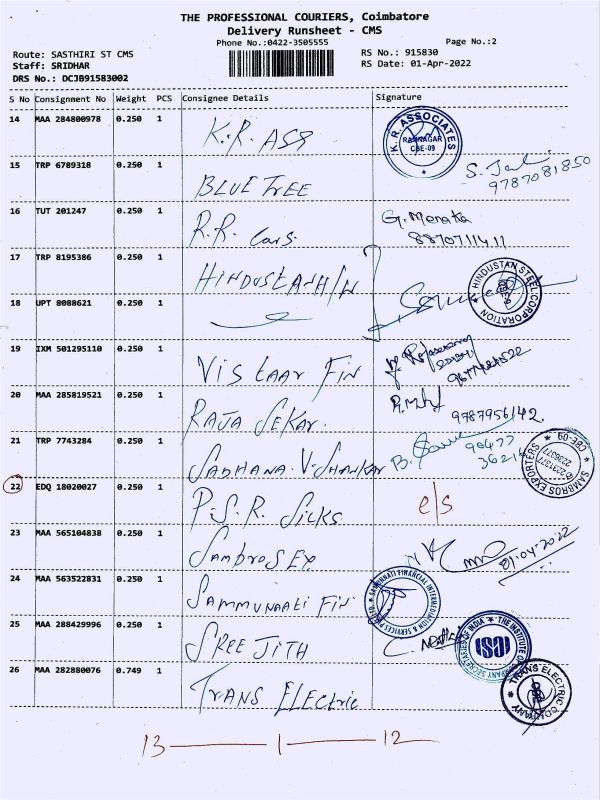 THE PROFESSIONAL COURIERS, Coimbatore
Delivery Runsheet - CMS
Phone No.:0422-3505555
Page No.:2
Route: SASTHIRI ST CMS
RS No.: 915830
Staff: SRIDHAR
RS Date: 01-Apr-2022
DRS No.: DCJB91583002
S No Consignment No Weight PCS Consignee Details Signature
14 MAA 284800978 0.250 1 K.R. ASS
K. R. ASSOCIATES
RAMNAGAR
CBE-09
15 TRP 6789318 0.250 1 BLUE TREE
9787081850
16 TUT 201247 0.250 1 R.R. Cars.
G. Menaka
8870711411
17 TRP 8195386 0.250 1 HINDUSTAN
HINDUSTAN STEEL CORPORATION
18 UPT 8088621 0.250 1
19 IXM 501295110 0.250 1 VISTAAR FIN
20 MAA 285819521 0.250 1 RAJA SEKAR.
9787956142
21 TRP 7743284 0.250 1 SADHANA. V. SHANKAR
SAMBROS EXPORTERS CBE-09
22 EDQ 18020027 0.250 1 P.S.R. SILKS
e/s
23 MAA 565104838 0.250 1 SAMBROS EX
01.04.2022
24 MAA 563522831 0.250 1 SAMMUNAATI FIN
25 MAA 288429996 0.250 1 SREE JITH
THE INSTITUTE OF COMPANY SECRETARIES OF INDIA
26 MAA 282880076 0.749 1 TRANS ELECTRIC
TRANS ELECTRIC COMPANY
13 — 1 — 12